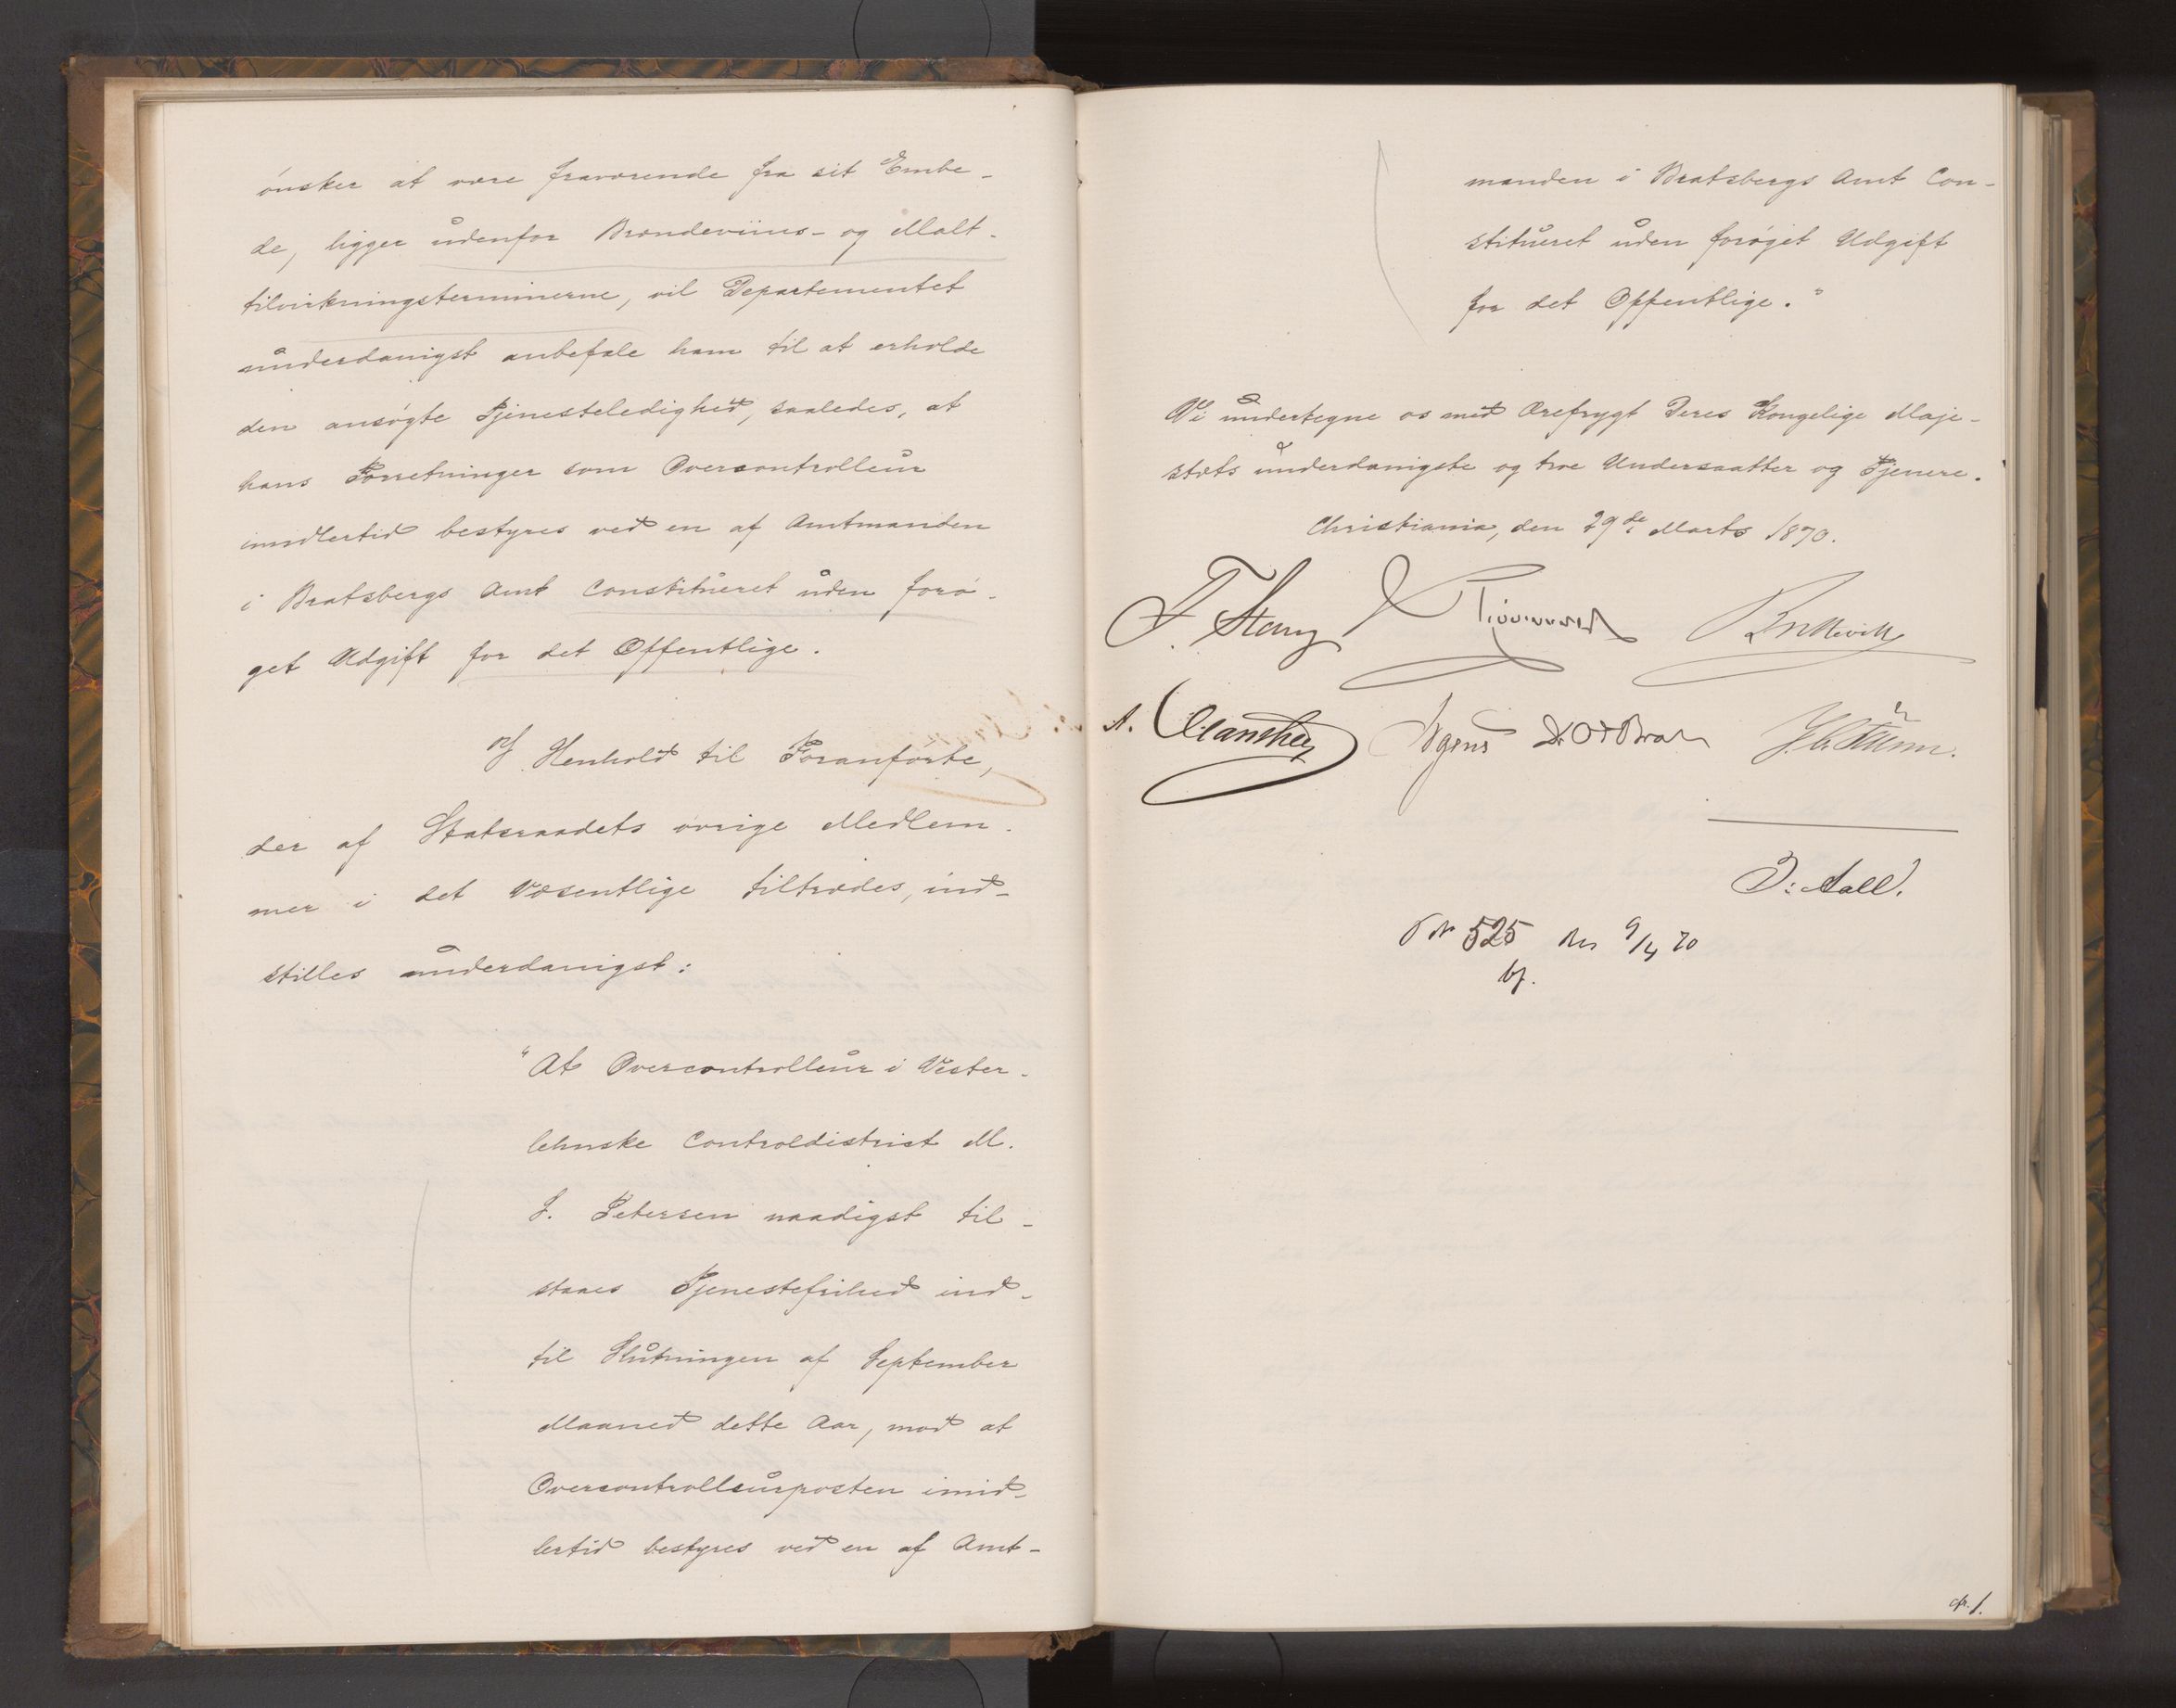 ønsker at være fraværende fra sit Embe-
de, ligger udenfor Brændeviins- og Malt-
tilvirkningsterminerne, vil Departementet
underdanigst anbefale ham til at erholde
den ansøgte Tjenesteledighed, saaledes, at
hans Forretninger som Overcontrolleur
imidlertid bestyres ved en af Amtmanden
i Bratsbergs Amt Constitueret uden forø-
get Udgift for det Offentlige.
I Henhold til Foranførte,
der af Statsraadets øvrige Medlem-
mer i det Væsentlige tiltrædes, ind-
stilles underdanigst:
"At Overcontrolleur i Vester-
lehnske Controldistrict M.
J. Petersen naadigst til-
staaes Tjenestefrihed ind-
til Slutningen af September
Maaned dette Aar, mod at
Overcontrolleurposten imid-
lertid bestyres ved en af Amt-
manden i Bratsbergs Amt Con-
stitueret uden forøget Udgift
for det Offentlige."
Vi undertegne os med Ærefrygt Deres Kongelige Maje-
stæts underdanigste og troe Undersaatter og Tjenere.
Christiania, den 29de Marts 1870.
F. Stang
A. Manthey Irgens
D: Aall.
No 525 Res 9/4 70